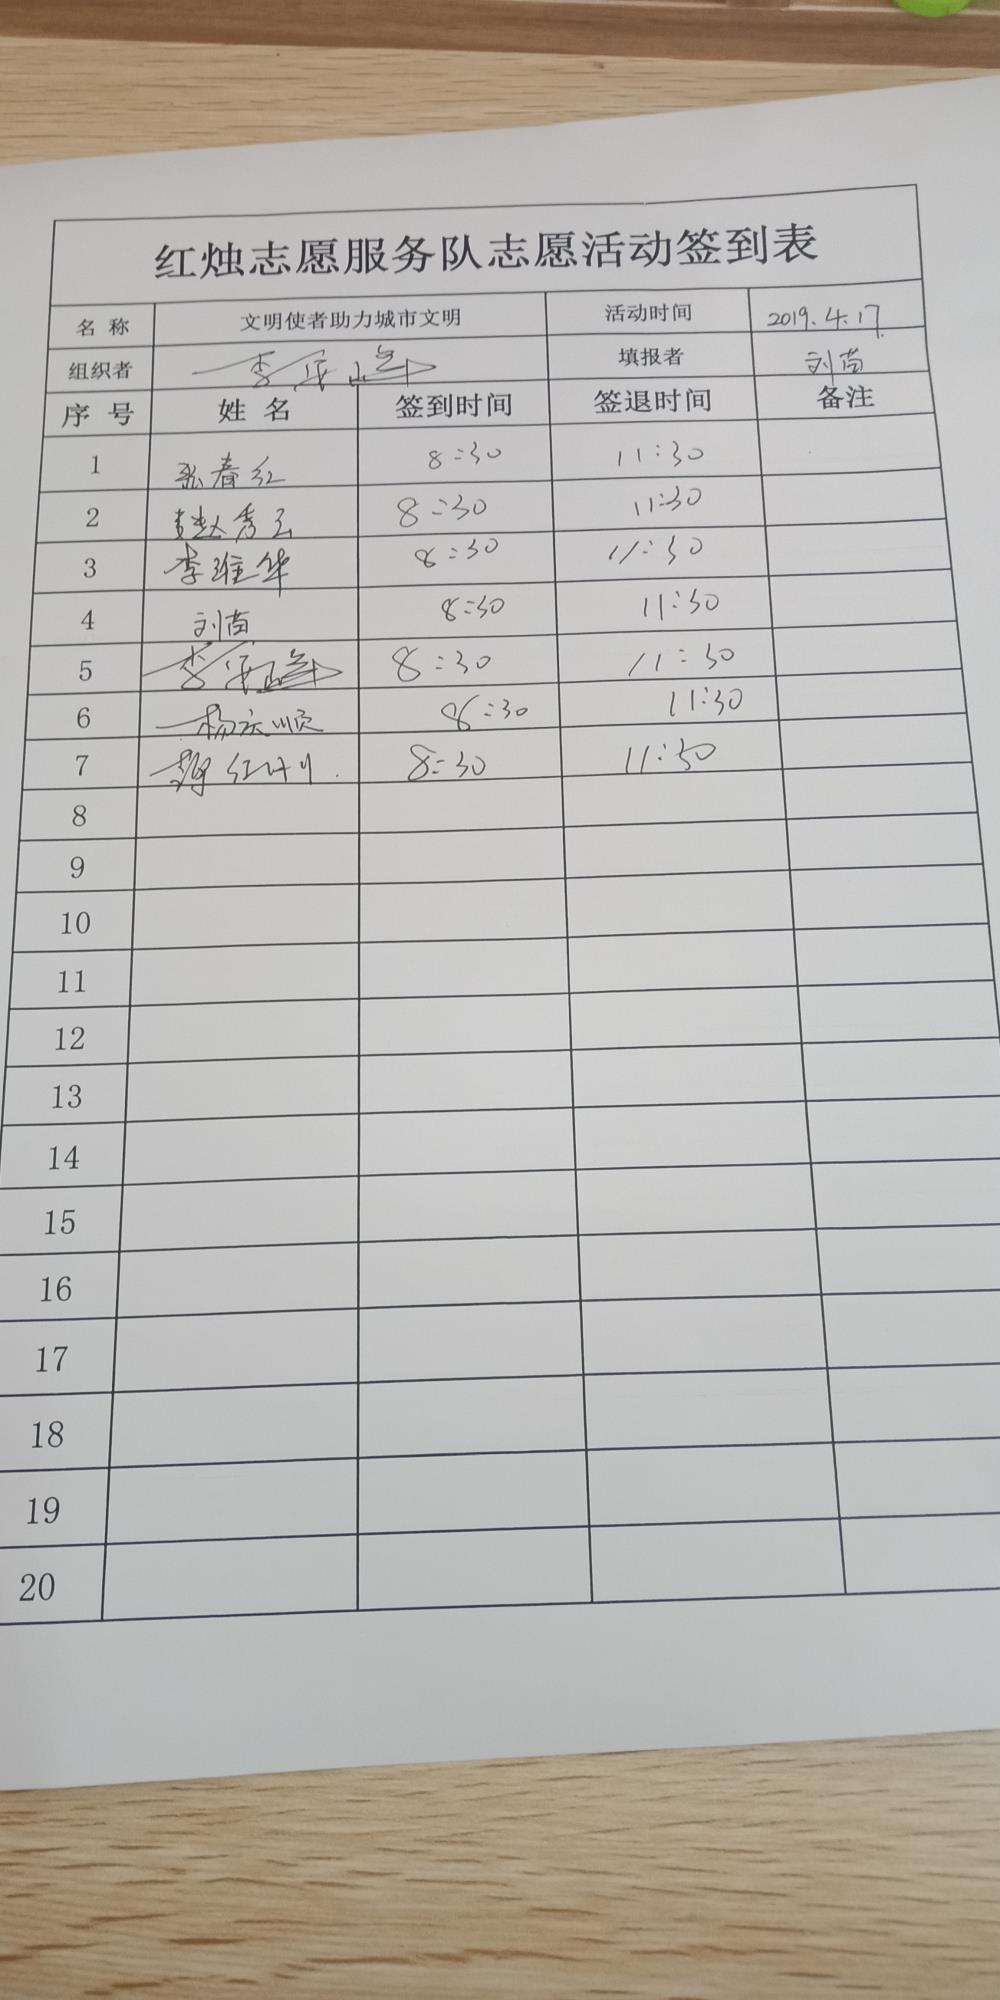 红烛志愿服务队志愿活动签到表
名 称 文明使者助力城市文明 活动时间 2019.4.17
组织者 李 峰 填报者 刘苗
序 号 姓 名 签到时间 签退时间 备注
1 张春红 8:30 11:30
2 赵秀云 8:30 11:30
3 李维华 8:30 11:30
4 刘苗 8:30 11:30
5 李 峰 8:30 11:30
6 杨庆顺 8:30 11:30
7 红 8:30 11:30
8
9
10
11
12
13
14
15
16
17
18
19
20